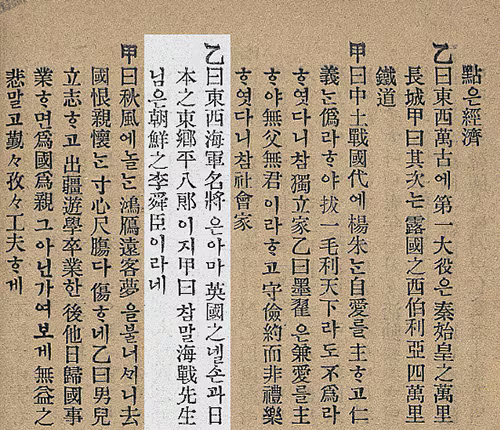 點은經濟
乙曰東西萬古에第一大役은秦始皇之萬里
長城甲曰其次는露國之西伯利亞四萬里
鐵道
甲曰中土戰國代에楊朱는自愛를主ᄒᆞ고仁
義는僞라ᄒᆞ야拔一毛利天下라도不爲라
ᄒᆞ엿다니참獨立家乙曰墨翟은兼愛를主
ᄒᆞ야無父無君이라ᄒᆞ고守儉約而非禮樂
ᄒᆞ엿다니참社會家
乙曰東西海軍名將은아마英國之넬손과日
本之東鄕平八郞이지甲曰참말海戰先生
님은朝鮮之李舜臣이라네
甲曰秋風에놀는鴻雁遠客夢을불너셔니去
國恨親懷는寸心尺膓다傷ᄒᆞ네乙曰男兒
立志ᄒᆞ고出疆遊學卒業한後他日歸國事
業ᄒᆞ면爲國爲親그아닌가여보게無益之
悲말고勤々孜々工夫ᄒᆞ게